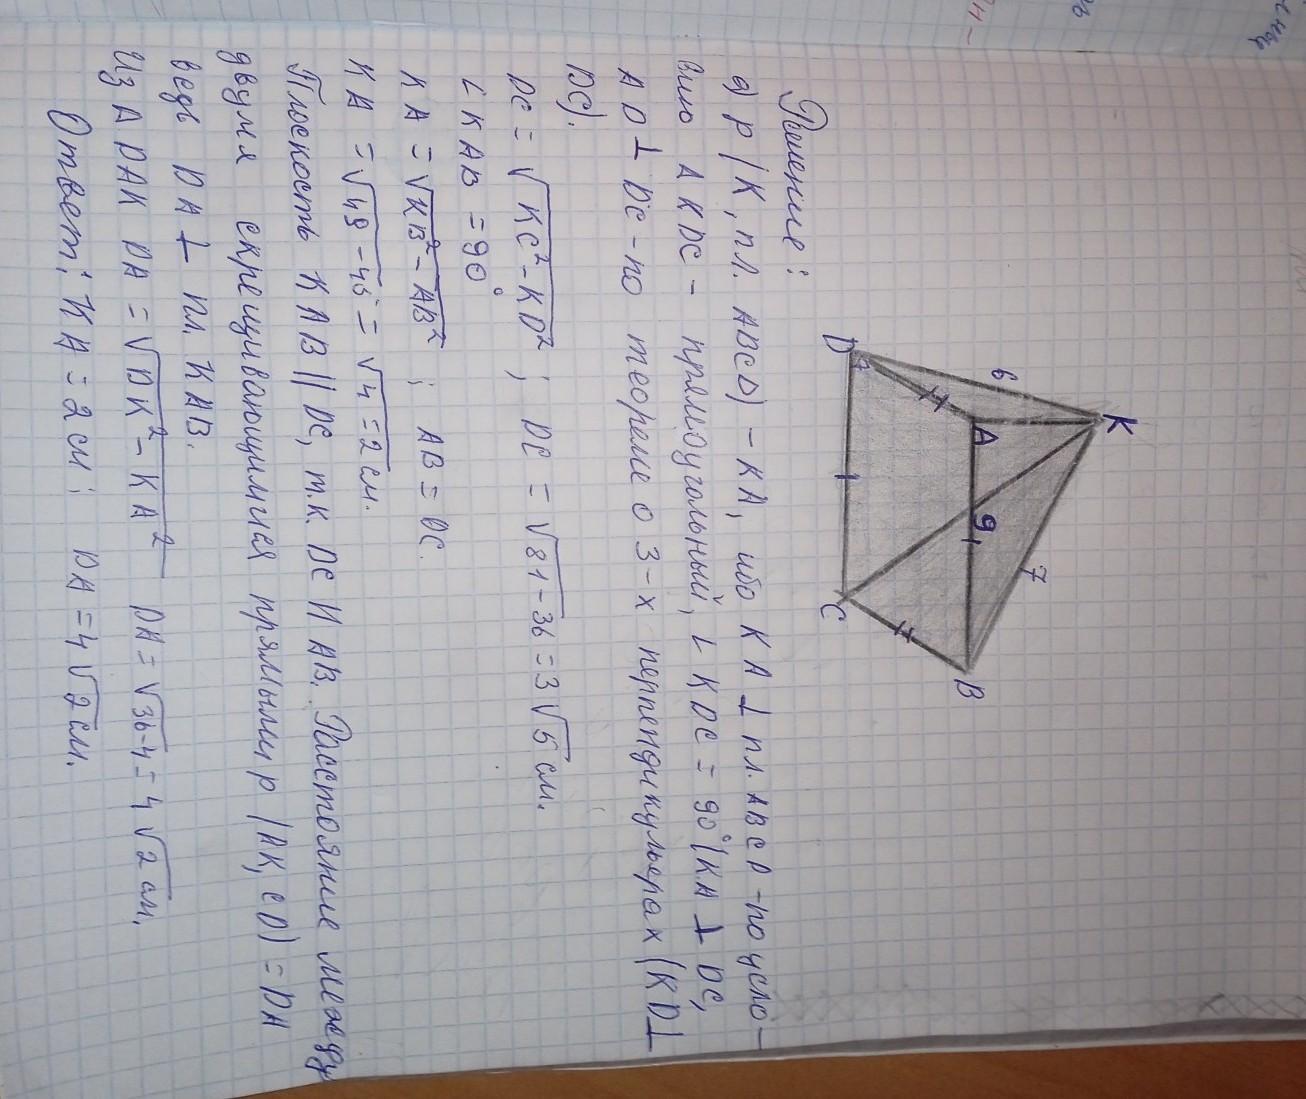 K
6
A
9
7
D
C
B
Решение:
а) p (K, пл. ABCD) - KA, ибо KA ⊥ пл. ABCD - по усло-
вию Δ KDC - прямоугольный, ∠ KDC = 90° (KA ⊥ DC,
AD ⊥ DC - по теореме о 3-х перпендикульерах (KD ⊥
DC).
DC = √KC² - KD² ; DC = √81 - 36 = 3√5 см.
∠ KAB = 90°
KA = √KB² - AB² ; AB = DC.
KA = √49 - 45 = √4 = 2 см.
Плоскость KAB || DC, т.к. DC || AB. Расстояние между
двумя скрещивающимися прямыми p (AK, CD) = DA
ведь DA ⊥ пл. KAB.
Из Δ DAK DA = √DK² - KA² DA = √36-4 = 4√2 см.
Ответ: KA = 2 см ; DA = 4√2 см.